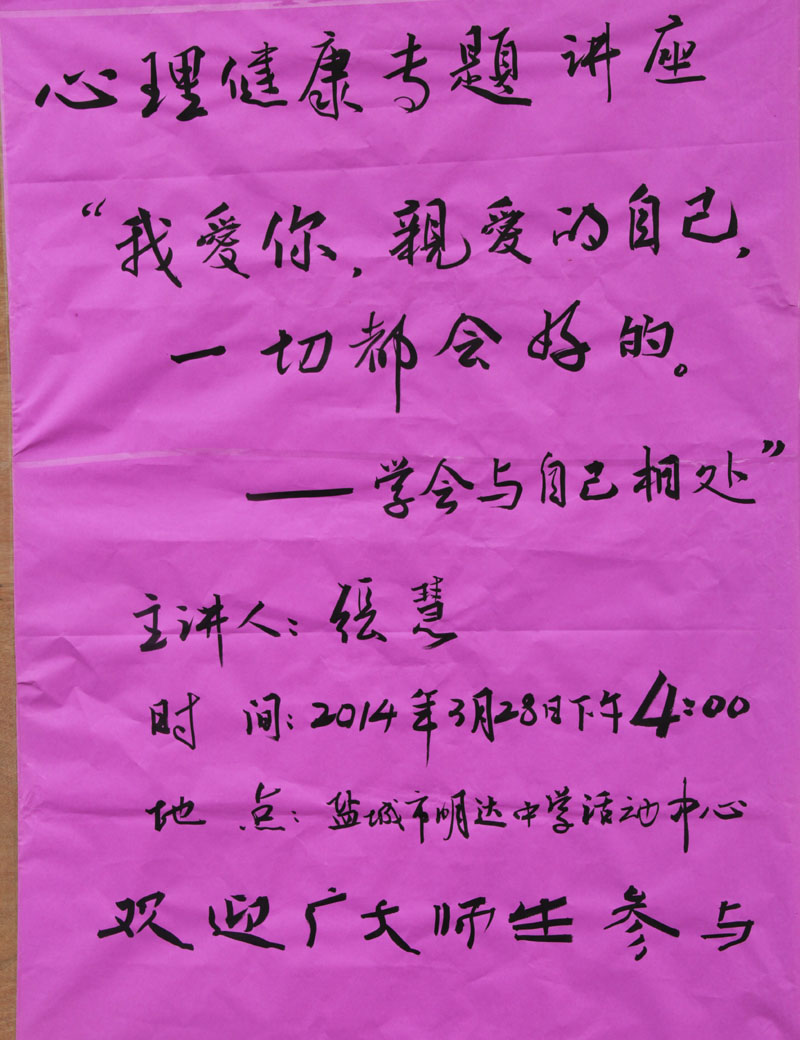 心理健康专题讲座
“我愛你，親爱的自己，
一切都会好的。
——学会与自己相处”
主讲人：张慧
时间：2014年3月28日下午4:00
地点：盐城市明达中学活动中心
欢迎广大师生参与